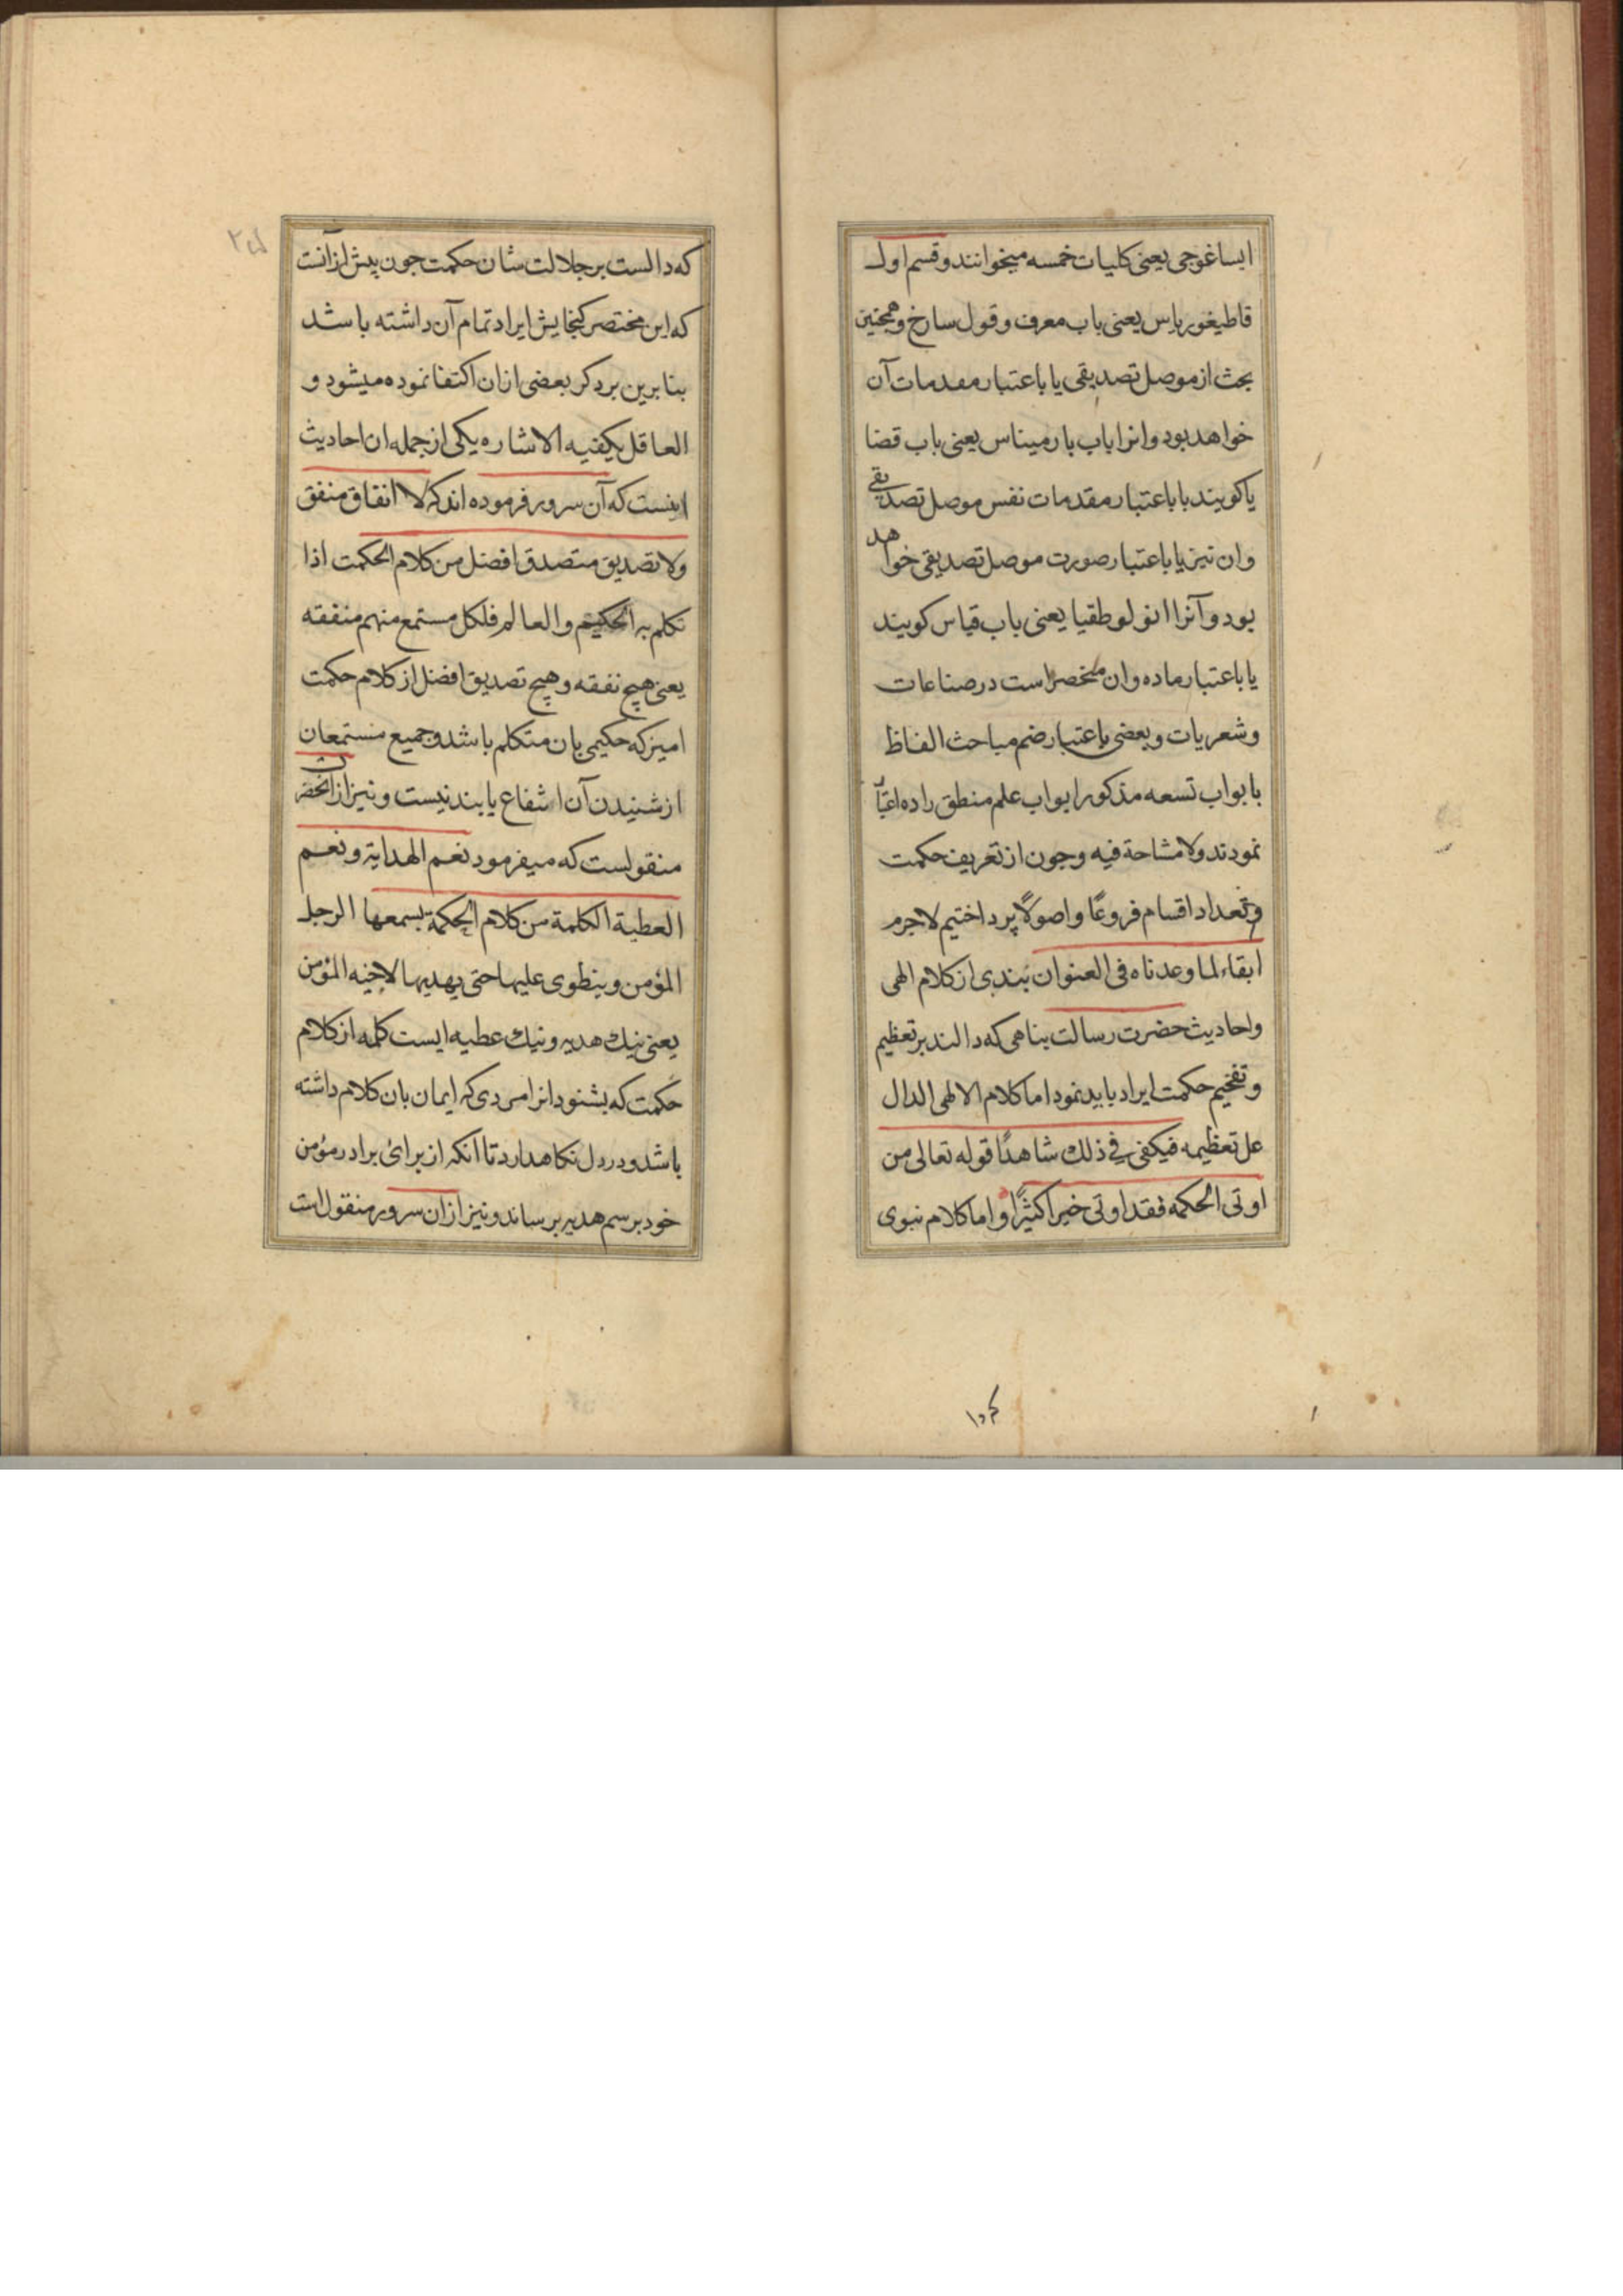 ایساغوجی یعنی کلیات خمسه میخوانند و قسم اول
قاطیغوریاس یعنی باب معرف و قول سارخ و همجنین
بحث از موصل تصدیقی یا باعتبار مقدمات آن
خواهد بود وانرا باب بارمیناس یعنی باب قضا
یا کویند یا باعتبار مقدمات نفس موصل تصدیقی
وان نیز یا باعتبار صورت موصل تصدیقی خواهد
بود و آنرا انولوطقیا یعنی باب قیاس کویند
یا باعتبار ماده وان منحصر است در صناعات
وشعریات و بعضی باعتبار ضم مباحث الفاظ
بابواب تسعه مذکور ابواب علم منطق را ده اعتبار
نمودند ولا مشاحة فیه وجون از تعریف حکمت
وتعداد اقسام فروعًا واصولًا پرداختیم لاجرم
ابقاء لما وعدناه فی العنوان نبندی از کلام الهی
واحادیث حضرت رسالت بناهی که دالند بر تعظیم
وتفخیم حکمت ایراد باید نمود اما کلام الالهی الدال
عل تعظیمه فیکفی فی ذلك شاهدًا قوله تعالی من
اوتی الحکمه فقد اوتی خیرا کثیرًا واما کلام نبوی
که دالست بر جلالت شان حکمت جون پیش از آنست
که این مختصر کنجایش ایراد تمام آن داشته باشد
بنابرین بر دکر بعضی ازان اکتفا نموده میشود و
العاقل یکفیه الاشاره یکی از جمله ان احادیث
اینست که آن سرور فرموده اند که لا انفاق منفق
ولا تصدیق متصدق افضل من کلام الحکمت اذا
تکلم به الحکیم والعالم فلکل مستمع منهم منفقه
یعنی هیج نفقه و هیج تصدیق افضل از کلام حکمت
امیز که حکیمی بان متکلم باشد وجمیع مستمعان
از شنیدن آن اشفاع یابند نیست و نیز از انحضرت
منقولست که میفرمود نعم الهدایة ونعم
العطیة الکلمة من کلام الحکمة یسمعها الرجل
المؤمن وینطوی علیها حتی یهدیها لاخیه المؤمن
یعنی نیك هدیه ونیك عطیه ایست کلمه از کلام
حکمت که بشنود انرا مردی که ایمان بان کلام داشته
باشد ودر دل نکاهدارد تا انکه از برائ برادر مؤمن
خود برسم هدیه برساند و نیز ازان سرور منقول است